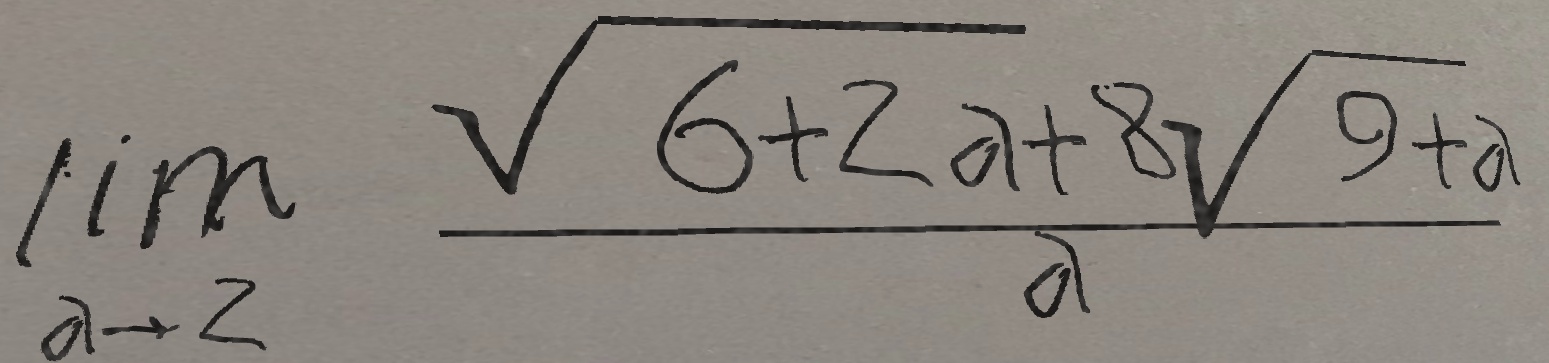 \lim_{a \to 2} \frac{\sqrt{6+2a}+8\sqrt{9+a}}{a}